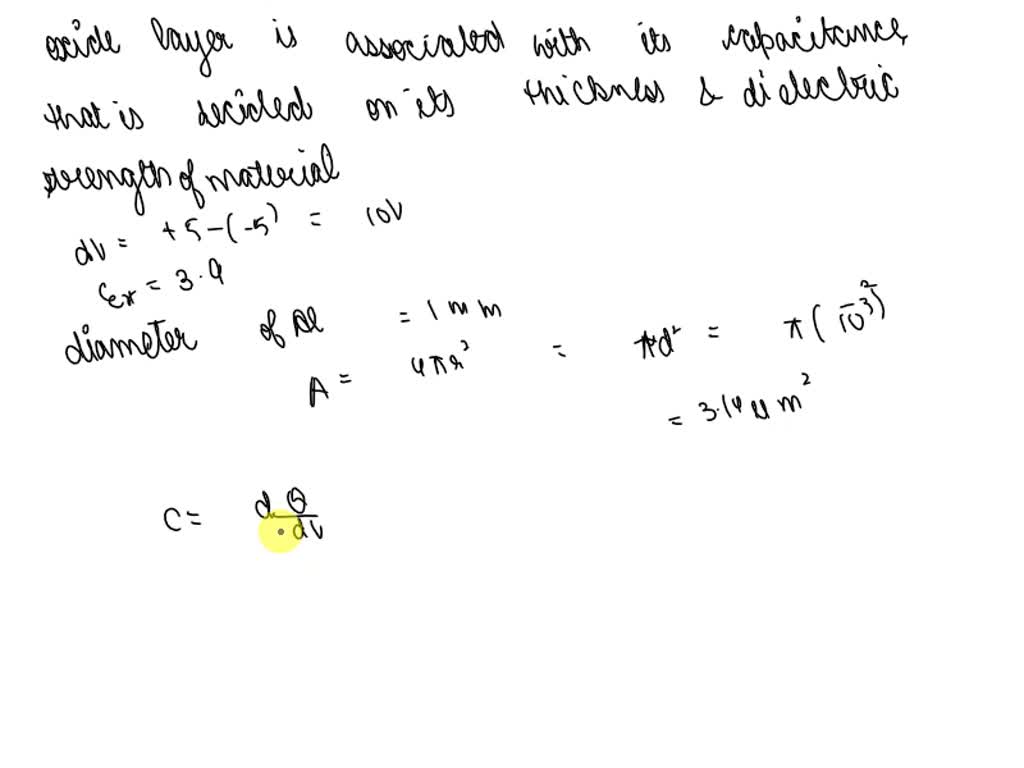 oxide layer is associated with its capacitance,
that is decided on its thickness & dielectric
strength of material
dV = +5-(-5) = 10V
εox = 3.9
diameter of Al = 1mm
A = 4πr² = πd² = π(10⁻³)²
= 3.14 μm²
C = dQ/dV